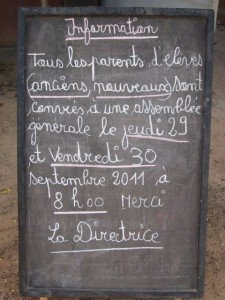 Information
Tous les parents d'élèves
(anciens, nouveaux) sont
conviés à une assemblée
generale le jeudi 29
et Vendredi 30
septembre 2011 à
8 h 00 Merci
La Directrice